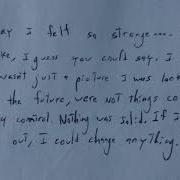 ay I felt so strange....
ke, I guess you could say. I
wasn't just a picture I was look
the future, were not things co
y control. Nothing was solid. If I
out, I could change anything.